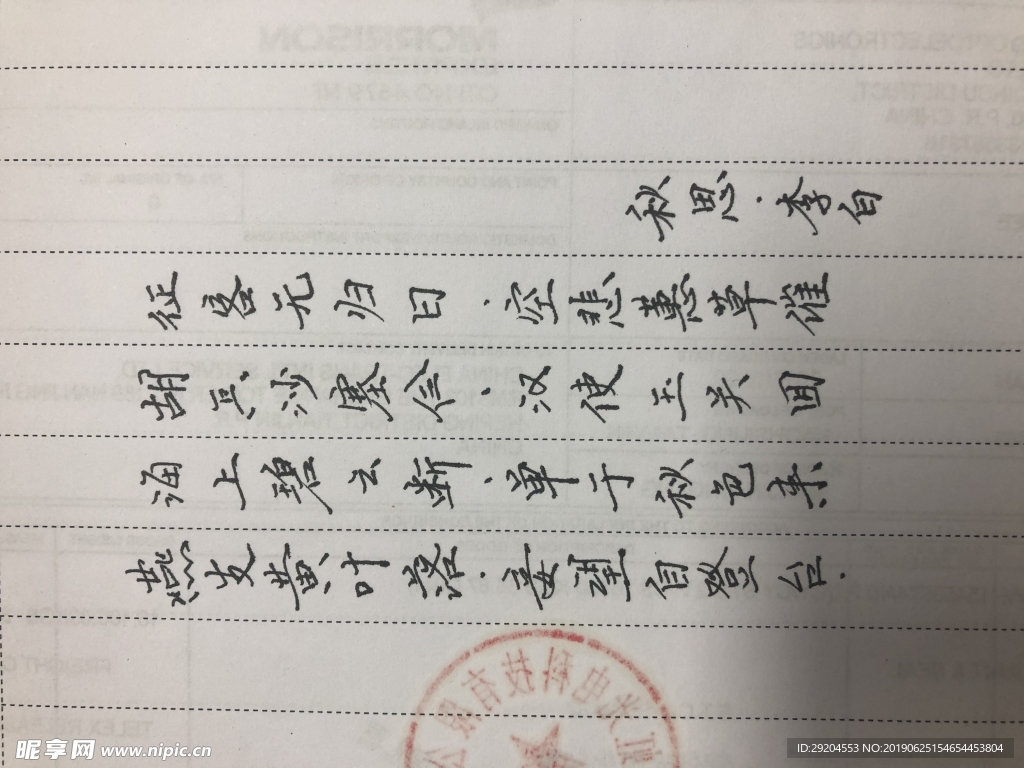 燕支黄叶落·妾望自登台·
海上碧云断·单于秋色来
胡兵沙塞合·汉使玉关囬
征客无归日·空悲蕙草催
秋思·李白
昵享网 www.nipic.cn
ID:29204553 NO:20190625154654453804